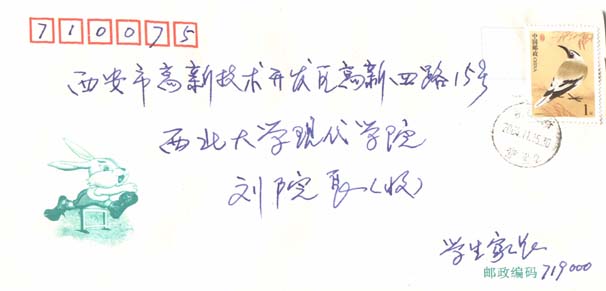 710075
中国邮政
西安市高新技术开发区高新四路15号
西北大学现代学院
刘院长(收)
学生家长
邮政编码 719000